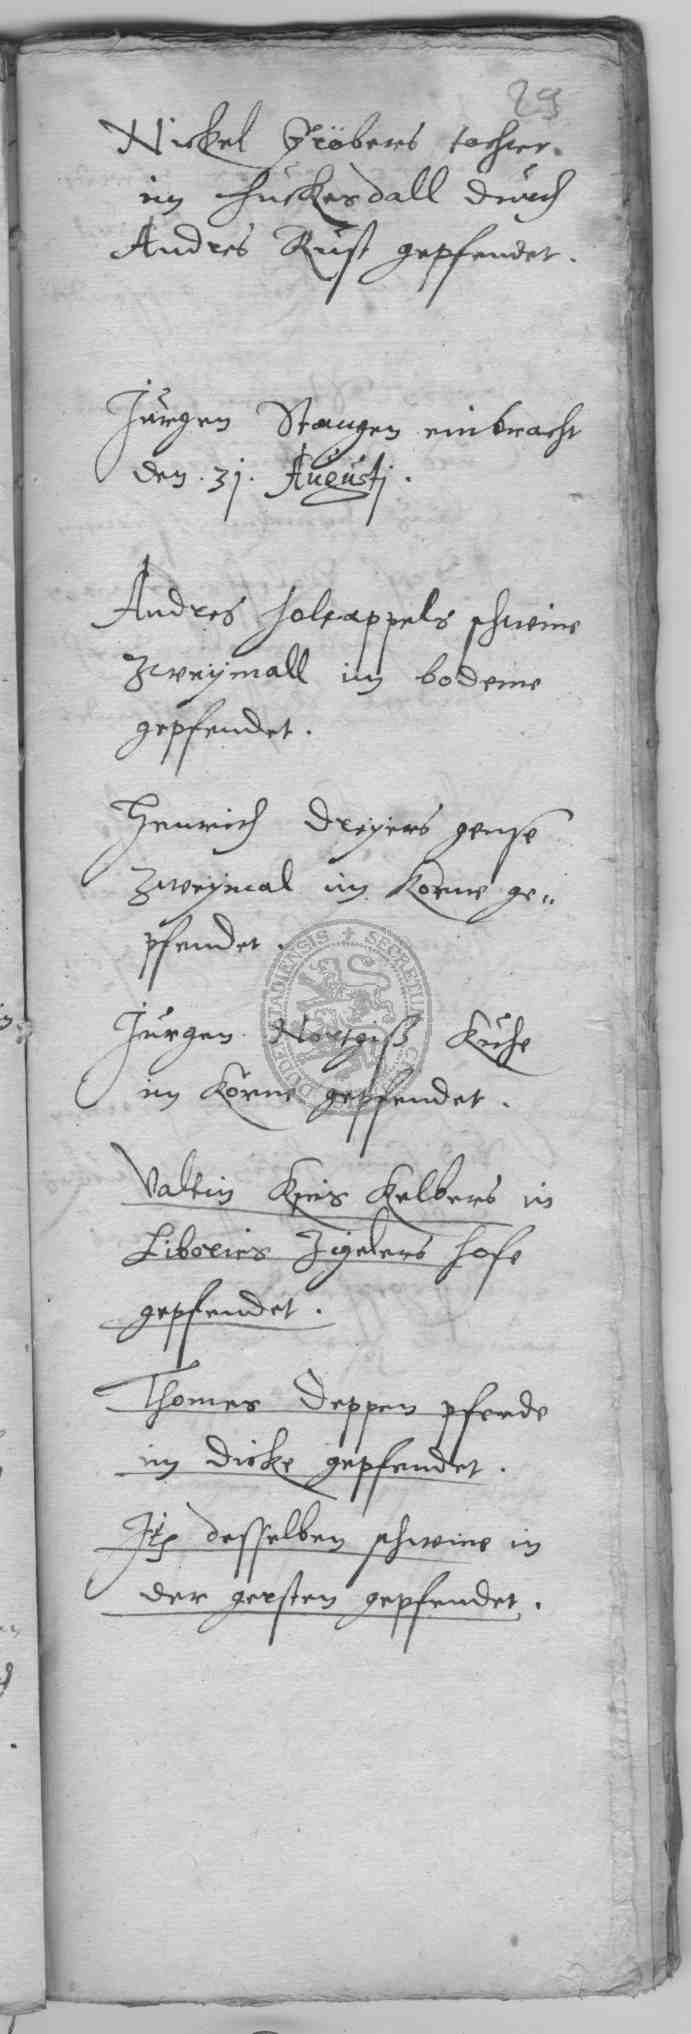 29
Nickel Gröbers tochter
im huckesdall durch
Andres Rust gepfendet.
Jürgen Stangen einbracht
den. 31. Augustj.
Andres holtzappels schweine
zweymall im bodeme
gepfendet.
Henrich Dreyers gense
zweymal im Korne ge„
pfendet.
Jürgen Kühe
im Korne gepfendet.
Valtin Kelbers in
Liborius Zigelers hofe
gepfendet.
Thomes Deppen pferde
im Dicke gepfendet.
desselben schweine in
der gersten gepfendet.
SECRETUM